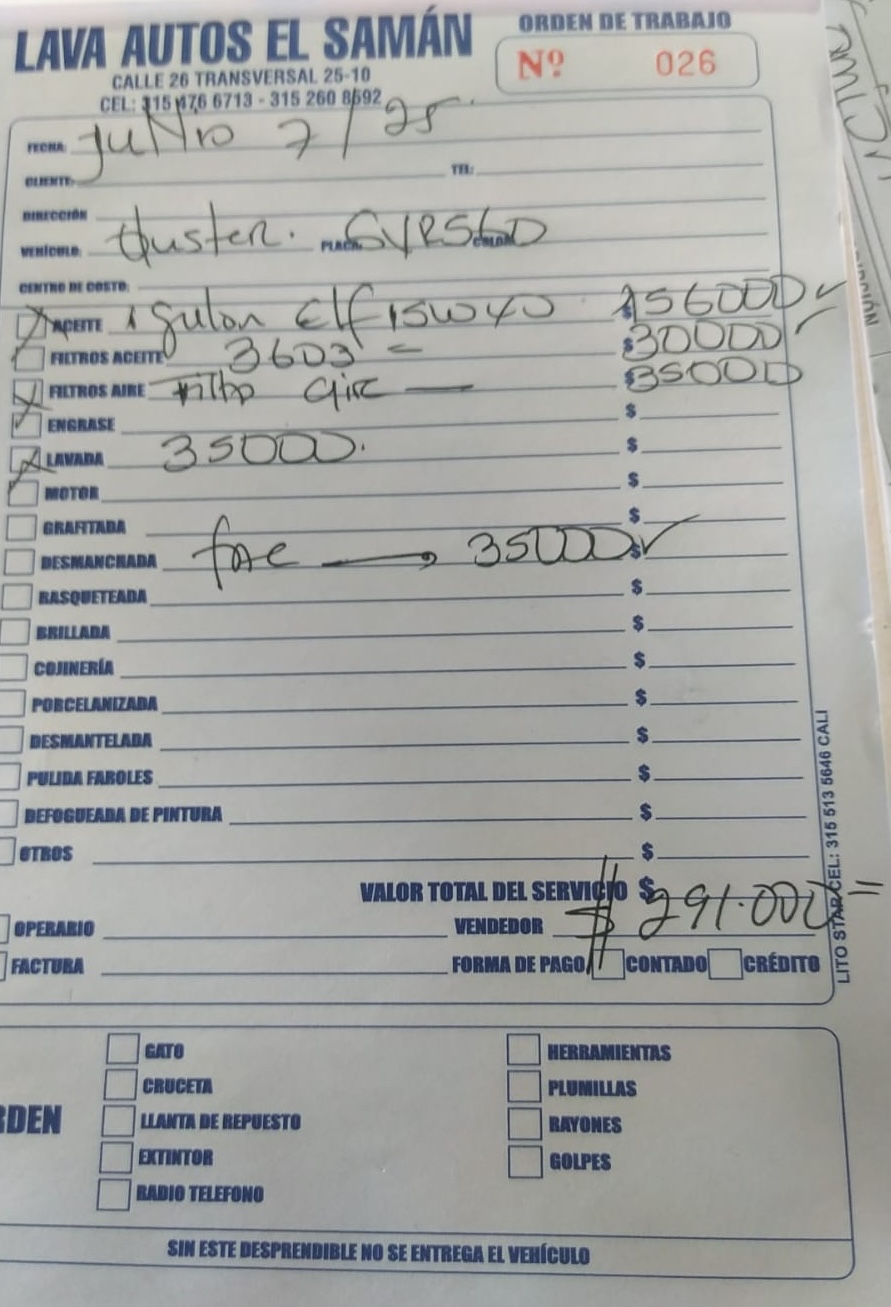 LAVA AUTOS EL SAMÁN
CALLE 26 TRANSVERSAL 25-10
CEL: 315 476 6713 - 315 260 8592
ORDEN DE TRABAJO
Nº 026
FECHA: 7/25
CLIENTE: TEL:
DIRECCIÓN
VEHÍCULO: Duster. PLACA COLOR
CENTRO DE COSTO:
ACEITE 1 Elf 15W40 $156000
FILTROS ACEITE 3603 $30000
FILTROS AIRE Filtro aire $35000
ENGRASE $
LAVADA 35000. $
MOTOR $
GRAFITADA $
DESMANCHADA → 35000 $
RASQUETEADA $
BRILLADA $
COJINERÍA $
PORCELANIZADA $
DESMANTELADA $
PULIDA FAROLES $
DEFOGUEADA DE PINTURA $
OTROS $
VALOR TOTAL DEL SERVICIO $
$ 291.000=
OPERARIO VENDEDOR
FACTURA FORMA DE PAGO CONTADO CRÉDITO
LITO STAR CEL: 315 513 5646 CALI
RDEN
GATO HERRAMIENTAS
CRUCETA PLUMILLAS
LLANTA DE REPUESTO RAYONES
EXTINTOR GOLPES
RADIO TELEFONO
SIN ESTE DESPRENDIBLE NO SE ENTREGA EL VEHÍCULO